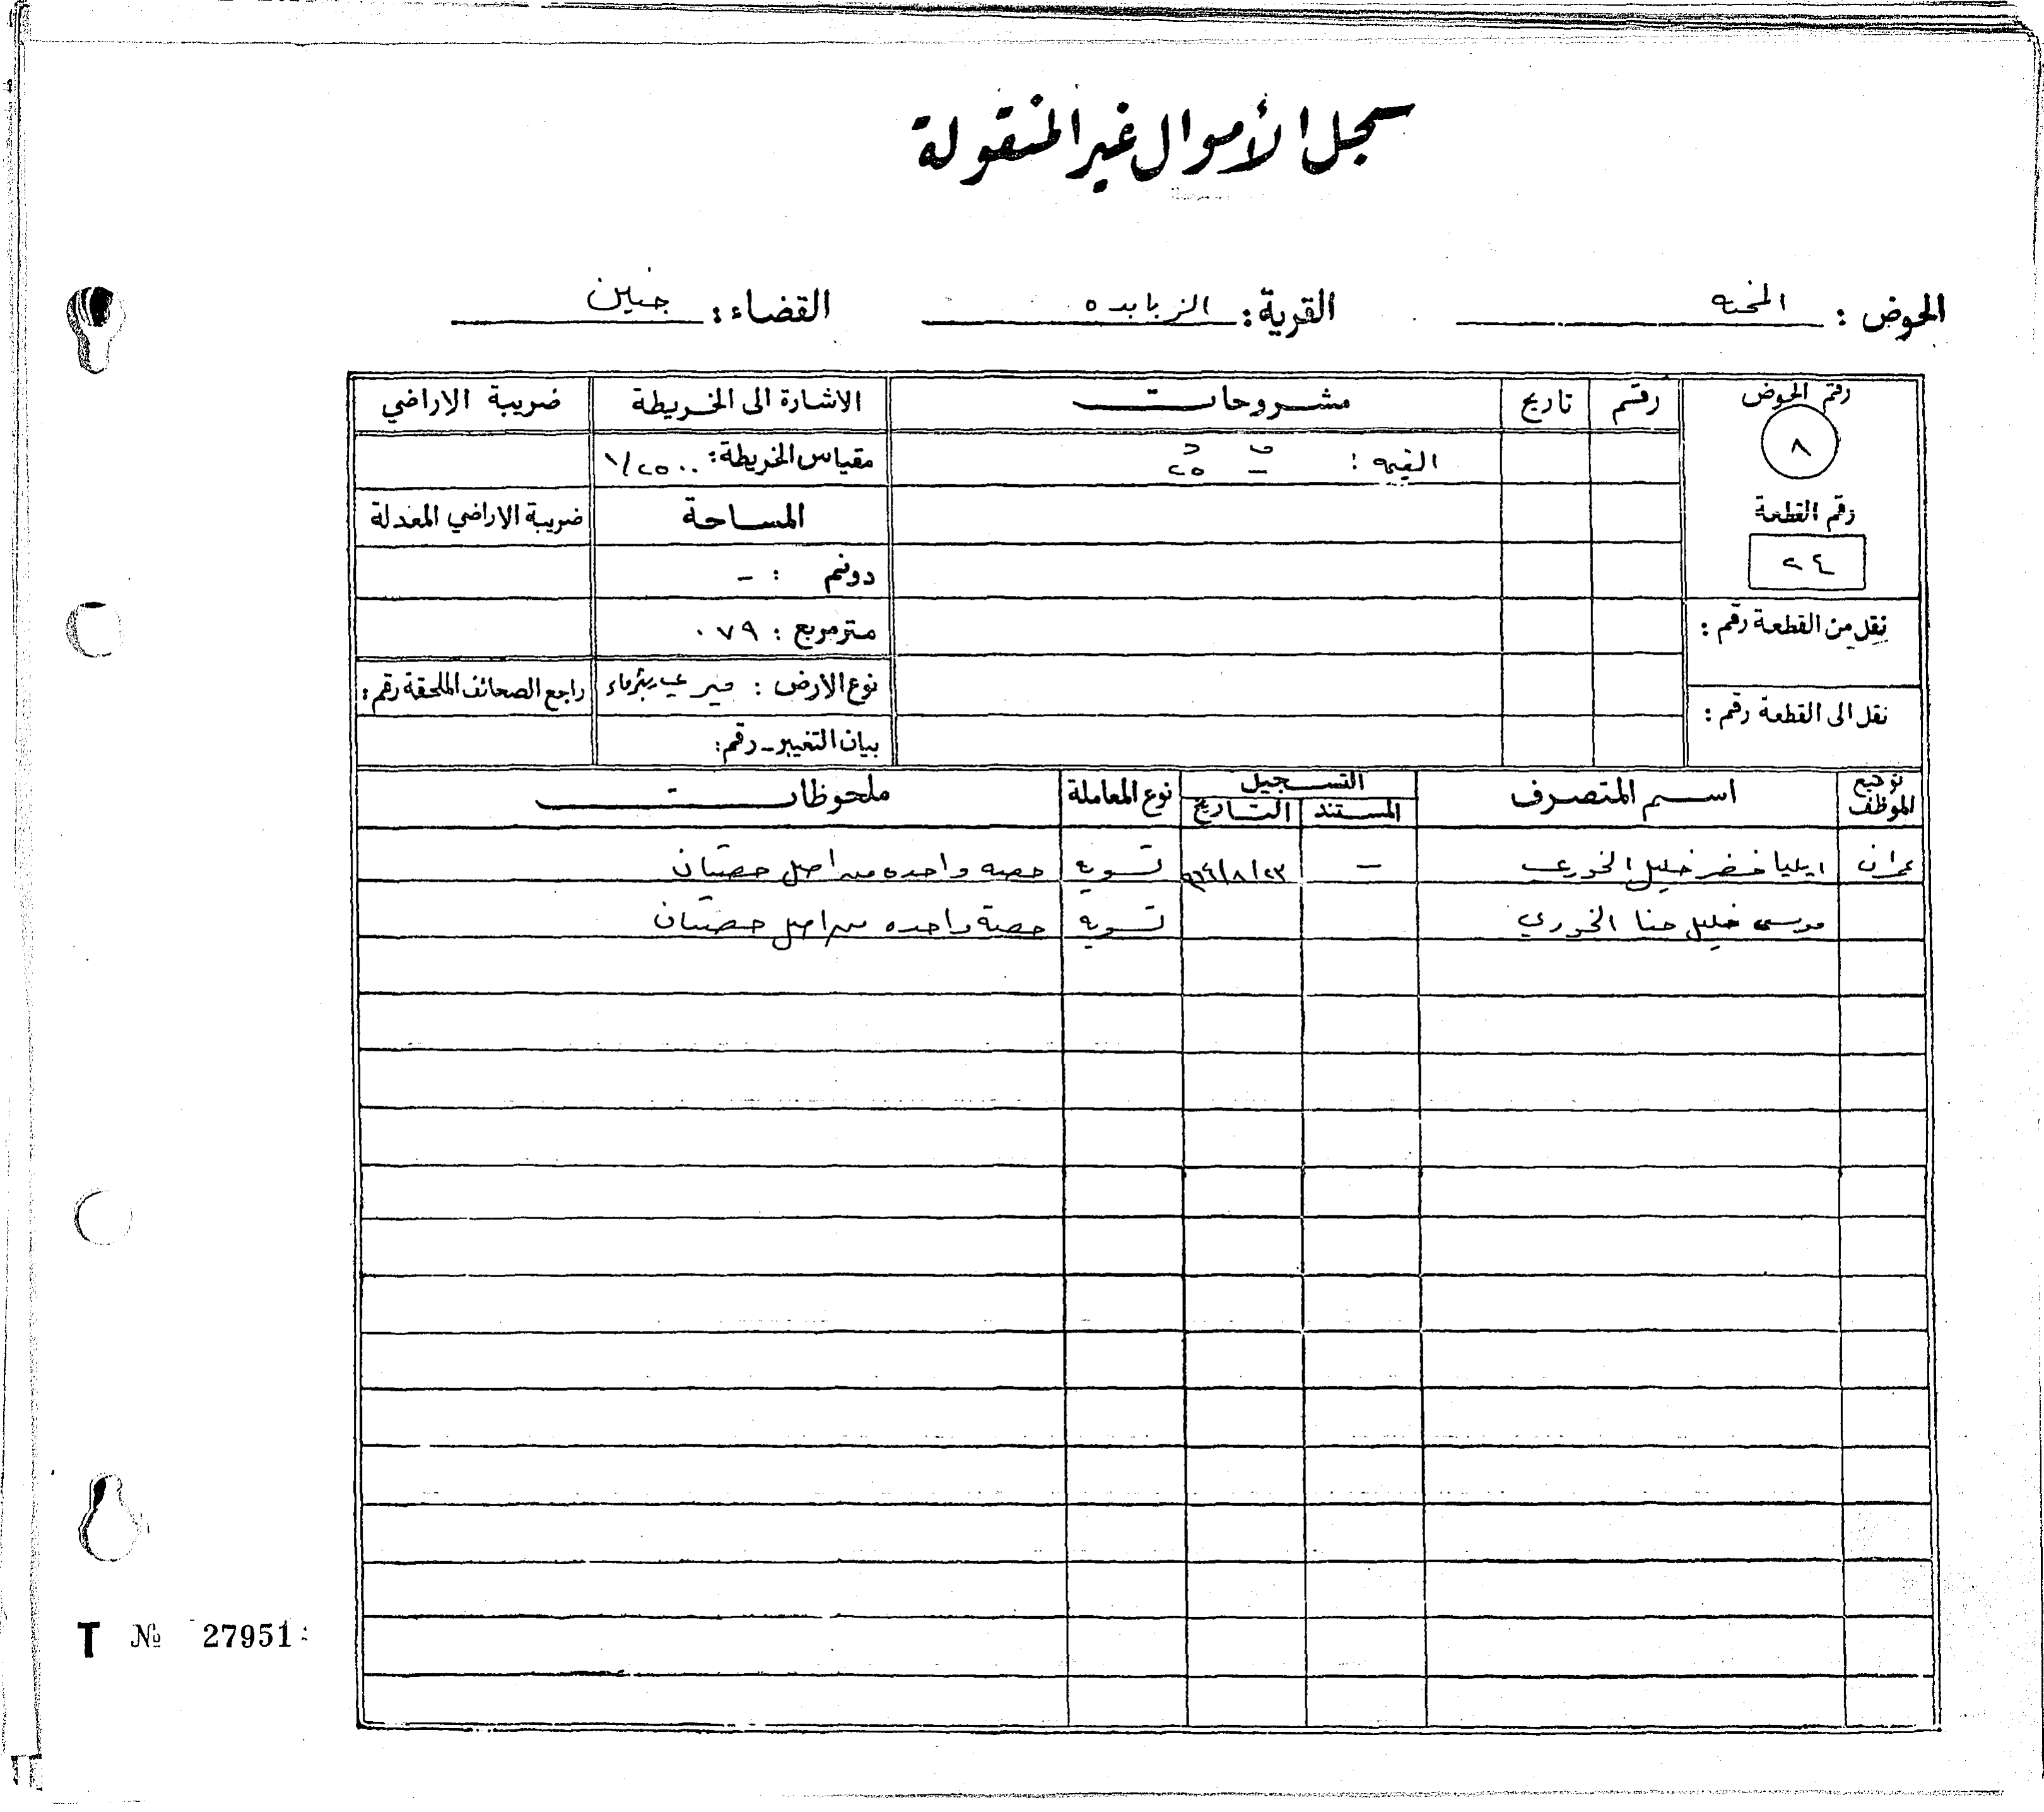 سجل الأموال غير المنقولة
الحوض : المحنه القرية : الزبابده القضاء : جنين
رقم الحوض رقم تاريخ مشروحات الاشارة الى الخريطة ضريبة الاراضي
٨ القيمه : ف – د ٢٥ مقياس الخريطة : ١/٢٥٠٠
رقم القطعة المساحة ضريبة الاراضي المعدلة
٢٤ دونم : –
نقل من القطعة رقم : متر مربع : ٠٧٩
نوع الأرض : ميري بئر ماء راجع الصحائف الملحقة رقم :
نقل الى القطعة رقم : بيان التغيير - رقم :
توقيع الموظف اسم المتصرف التسجيل نوع المعاملة ملحوظات
المستند التاريخ
عمران ايليا خضر خليل الخوري – ٩٦٤/٨/٢٣ تسويه حصه واحده من اصل حصتان
موسى خليل حنا الخوري تسويه حصة واحده من اصل حصتان
T № 27951